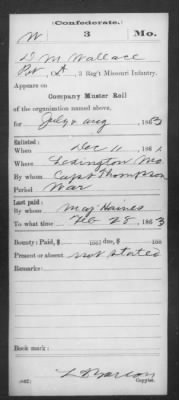 (Confederate.)
W 3 Mo.
D M Wallace
Pvt, Co. A, 3 Reg't Missouri Infantry.
Appears on
Company Muster Roll
of the organization named above,
for July & Aug, 1863
Enlisted:
When Dec 11, 186
Where Lexington Mo
By whom Capt Thompson
Period War
Last paid:
By whom Maj Haines
To what time Feb 28, 1863
Bounty: Paid, $ ; due, $
Present or absent not stated
Remarks:
Book mark:
(642)
Copyist.